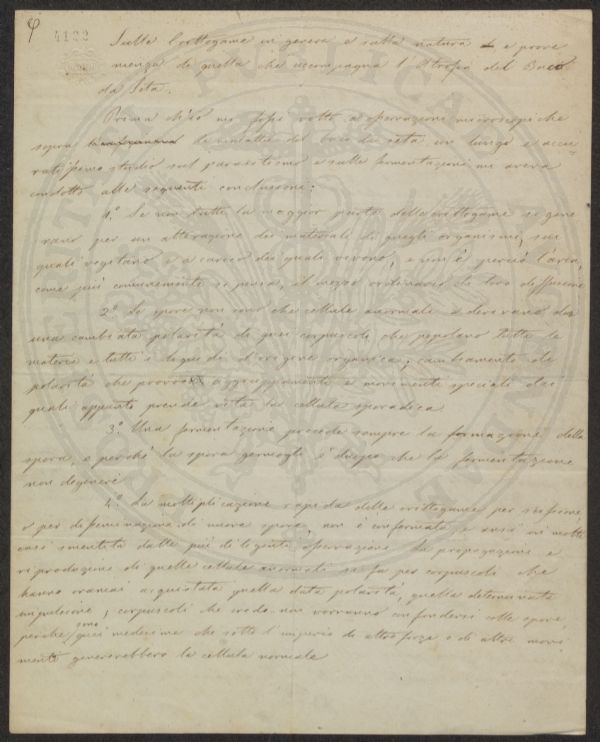 φ
4122
Sulle Crittogame in genere e sulla natura e prove
nienza di quella che accompagna l'Atrofia del Baco
da Seta.
Prima ch'io mi fossi volto a osservazioni microscopiche
sopra la malattia del baco da seta un lungo e accu-
ratissimo studio sul parasitismo e sulle fermentazioni mi aveva
condotto alle seguenti conclusioni:
1.° Se non tutte la maggior parte delle crittogame si gene
rano per un alterazione dei materiali di quegli organismi, sui
quali vegetano e a carico dei quali vivono, e non è perciò l'aria,
come più comunemente si pensa, il mezzo ordinario di loro diffusione
2.° Le spore non sono che cellule anormali e derivano da
una cambiata polarità di quei corpuscoli che popolano tutte le
materie e tutti i liquidi d'origine organica; cambiamento di
polarità che provoca aggruppamenti e movimenti speciali dai
quali appunto prende vita la cellula sporadica
3.° Una fermentazione precede sempre la formazione della
spora, e perchè la spora germogli è d'uopo che la fermentazione
non degeneri
4.° La moltiplicazione rapida delle crittogame per scissione
o per disseminazione di nuove spore, non è confermata e anzi in molti
casi smentita dalle più diligenti osservazioni. La propagazione e
riproduzione di quelle cellule anormali si fa per corpuscoli che
hanno oramai acquistata quella data polarità, quella determinata
impulsione; corpuscoli che credo non vorranno confondersi colle spore,
perchè sono quei medesimi che sotto l'imperio di altra forza e di altri movi
menti genererebbero la cellula normale